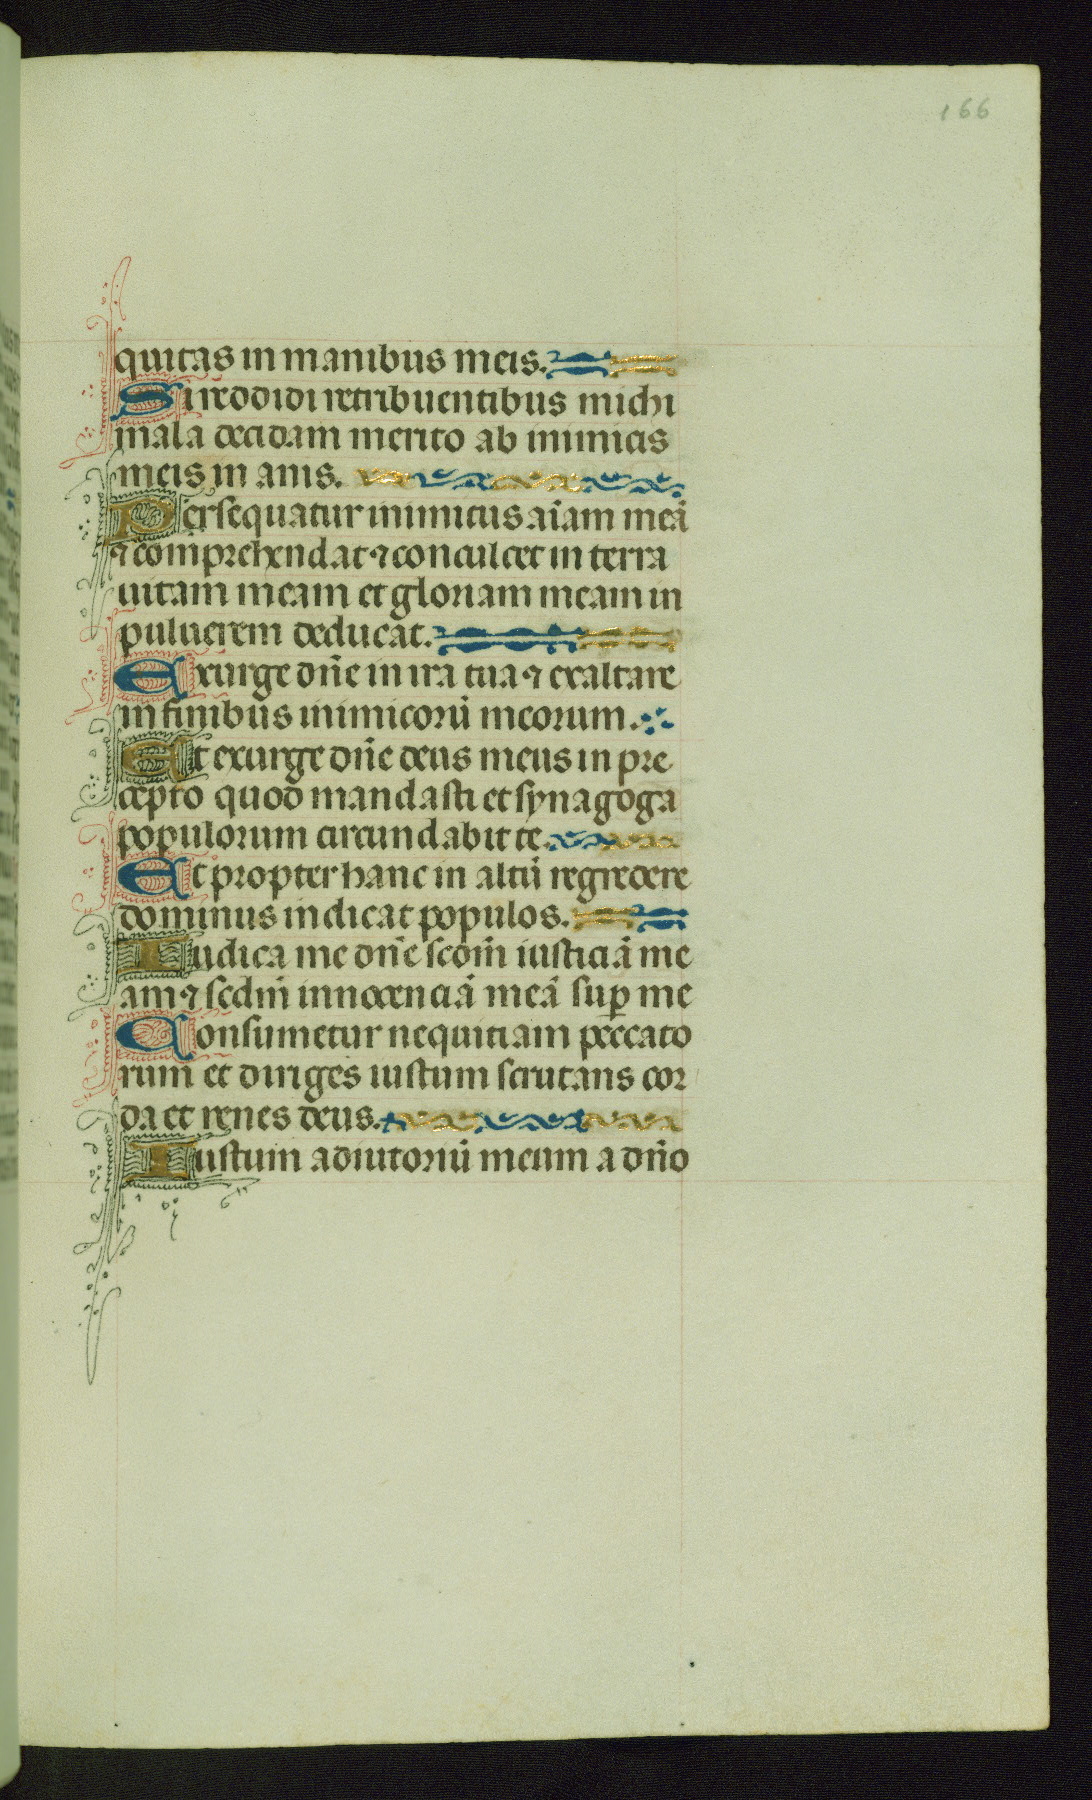 166
quitas in manibus meis.
Si reddidi retribuentibus michi
mala decidam merito ab inimicis
meis in anis.
Persequatur inimicus aīam meā
⁊ comprehendat ⁊ conculcet in terra
uitam meam et gloriam meam in
puluerem deducat.
Exurge dñe in ira tua ⁊ exaltare
in finibus inimicorū meorum.
Et exurge dñe deus meus in pre
cepto quod mandasti et synagoga
populorum circundabit te.
Et propter hanc in altū regredere
dominus iudicat populos.
Iudica me dñe scdm̄ iusticiā me
am ⁊ scdm̄ innocenciā meā suꝑ me
Consumetur nequitiam peccato
rum et diriges iustum scrutans cor
da et renes deus.
Iustum adiutoriū meum a dño